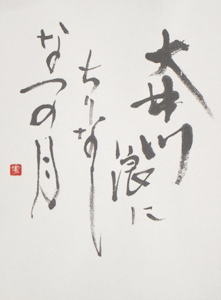 大井川浪に
ちりなし
なつの月